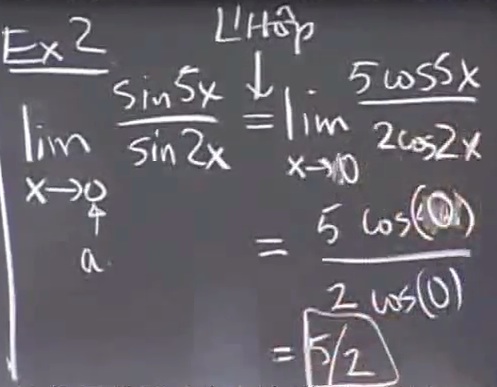 Ex 2
L'Hôp
lim x→0 sin 5x / sin 2x = lim x→0 5 cos 5x / 2 cos 2x
a
= 5 cos(0) / 2 cos(0)
= 5/2